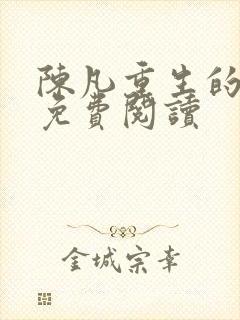 陳凡重生的
免費閱讀
金城宗幸